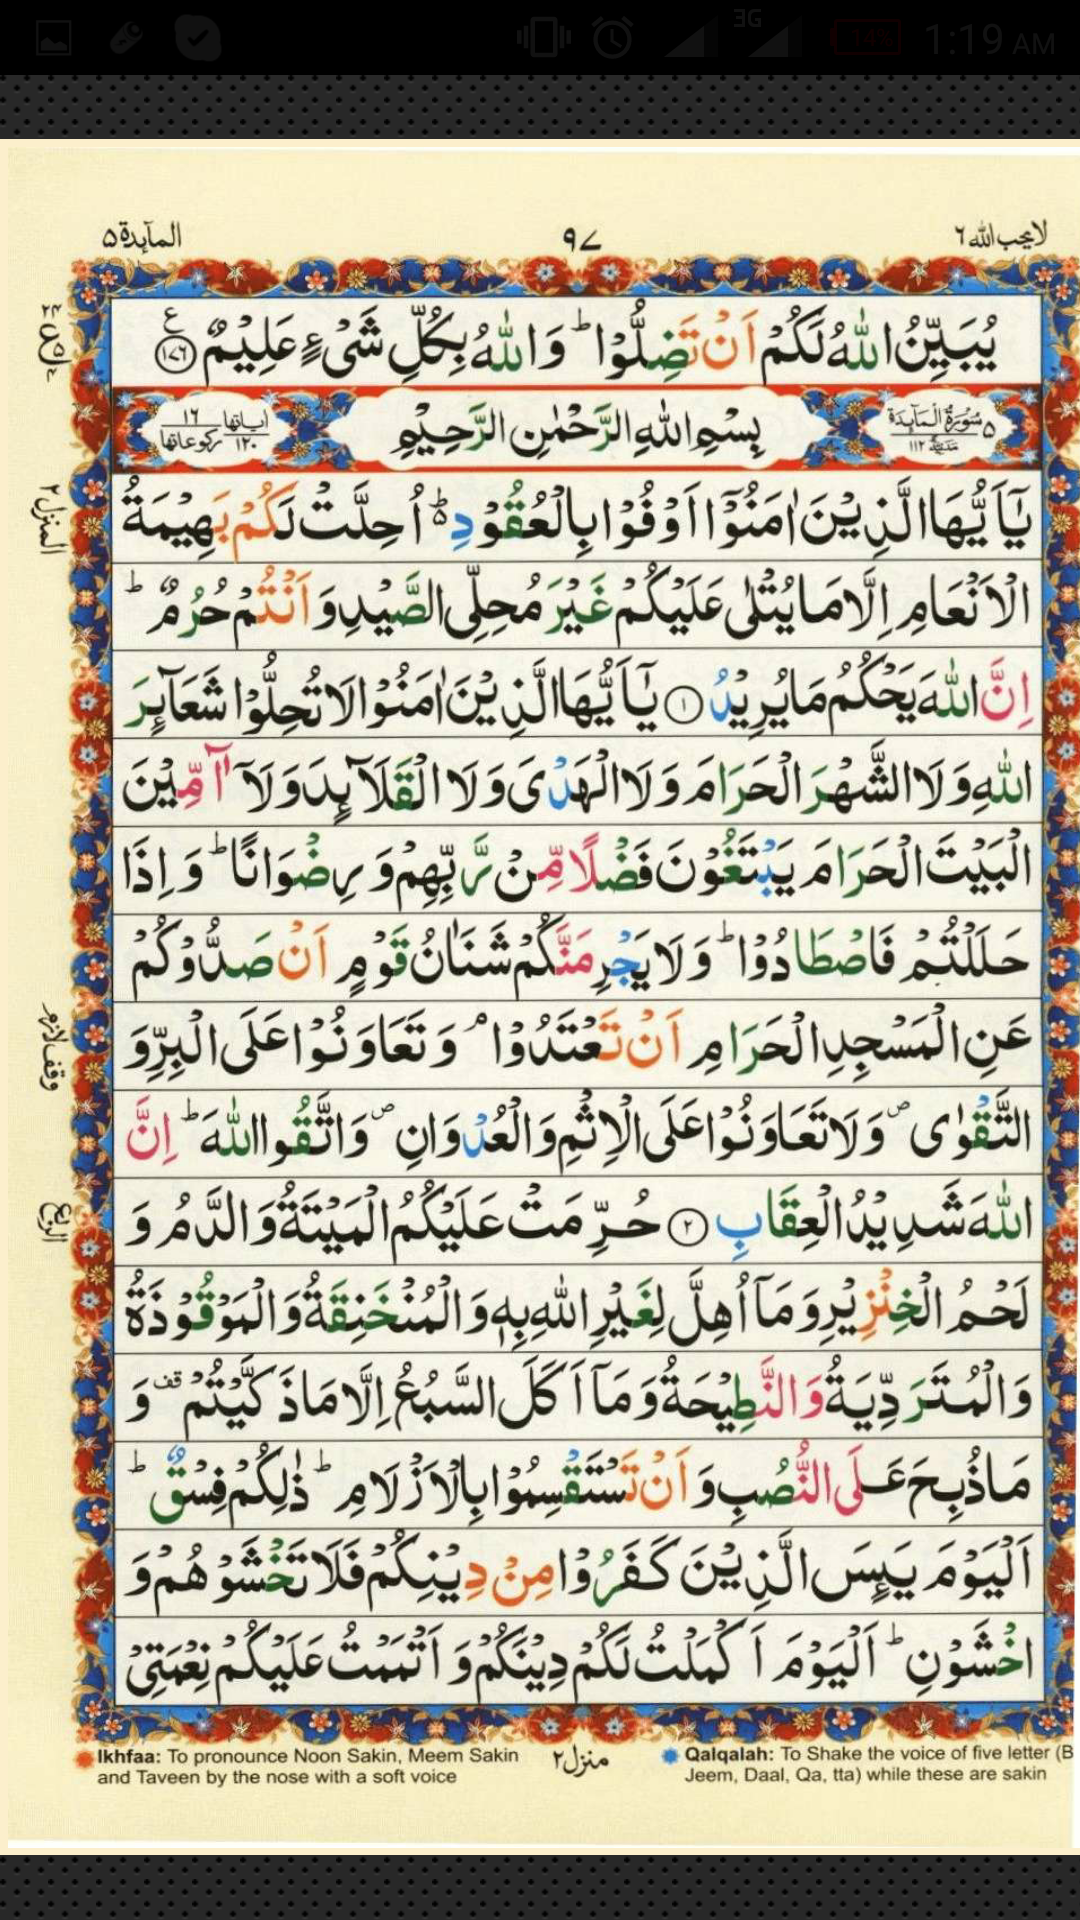 3G 14% 1:19 AM
المآيدة ۵ ۹۷ لا يحب الله ٦
يُبَيِّنُ اللّٰهُ لَكُمْ اَنْ تَضِلُّوْا ؕ وَاللّٰهُ بِكُلِّ شَیْءٍ عَلِيْمٌ ۝۱۷۶ ع
۵ سُوْرَةُ الْمَآيِدَة مَدَنِيَّة ۱۱۲ بِسْمِ اللّٰهِ الرَّحْمٰنِ الرَّحِيْمِ اٰياتها ۱۲۰ ركوعاتها ۱۶
يٰۤاَيُّهَا الَّذِيْنَ اٰمَنُوْۤا اَوْفُوْا بِالْعُقُوْدِ ؕ۬ اُحِلَّتْ لَكُمْ بَهِيْمَةُ
المنزل ۲
الْاَنْعَامِ اِلَّا مَا يُتْلٰى عَلَيْكُمْ غَيْرَ مُحِلِّى الصَّيْدِ وَ اَنْتُمْ حُرُمٌ ؕ
اِنَّ اللّٰهَ يَحْكُمُ مَا يُرِيْدُ ۝۱ يٰۤاَيُّهَا الَّذِيْنَ اٰمَنُوْا لَا تُحِلُّوْا شَعَآئِرَ
اللّٰهِ وَ لَا الشَّهْرَ الْحَرَامَ وَ لَا الْهَدْیَ وَ لَا الْقَلَآئِدَ وَ لَاۤ آٰمِّيْنَ
الْبَيْتَ الْحَرَامَ يَبْتَغُوْنَ فَضْلًا مِّنْ رَّبِّهِمْ وَ رِضْوَانًا ؕ وَ اِذَا
حَلَلْتُمْ فَاصْطَادُوْا ؕ وَ لَا يَجْرِمَنَّكُمْ شَنَاٰنُ قَوْمٍ اَنْ صَدُّوْكُمْ
عَنِ الْمَسْجِدِ الْحَرَامِ اَنْ تَعْتَدُوْا ۘ وَ تَعَاوَنُوْا عَلَى الْبِرِّ وَ
وقف لازم
التَّقْوٰى ۪ وَ لَا تَعَاوَنُوْا عَلَى الْاِثْمِ وَ الْعُدْوَانِ ۪ وَ اتَّقُوا اللّٰهَ ؕ اِنَّ
اللّٰهَ شَدِيْدُ الْعِقَابِ ۝۲ حُرِّمَتْ عَلَيْكُمُ الْمَيْتَةُ وَ الدَّمُ وَ
الربع
لَحْمُ الْخِنْزِيْرِ وَ مَاۤ اُهِلَّ لِغَيْرِ اللّٰهِ بِهٖ وَ الْمُنْخَنِقَةُ وَ الْمَوْقُوْذَةُ
وَ الْمُتَرَدِّيَةُ وَ النَّطِيْحَةُ وَ مَاۤ اَكَلَ السَّبُعُ اِلَّا مَا ذَكَّيْتُمْ قف وَ
مَا ذُبِحَ عَلَى النُّصُبِ وَ اَنْ تَسْتَقْسِمُوْا بِالْاَزْلَامِ ؕ ذٰلِكُمْ فِسْقٌ ؕ
اَلْيَوْمَ يَئِسَ الَّذِيْنَ كَفَرُوْا مِنْ دِيْنِكُمْ فَلَا تَخْشَوْهُمْ وَ
اخْشَوْنِ ؕ اَلْيَوْمَ اَكْمَلْتُ لَكُمْ دِيْنَكُمْ وَ اَتْمَمْتُ عَلَيْكُمْ نِعْمَتِىْ
Ikhfaa: To pronounce Noon Sakin, Meem Sakin
and Taveen by the nose with a soft voice
منزل ۲
Qalqalah: To Shake the voice of five letter (B
Jeem, Daal, Qa, tta) while these are sakin